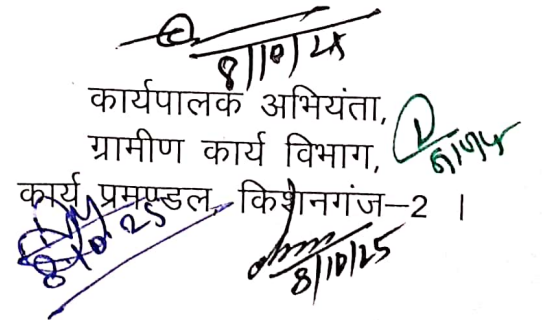 8/10/25
कार्यपालक अभियंता,
ग्रामीण कार्य विभाग,
कार्य प्रमण्डल, किशनगंज–2 ।
8/10/25
8/10/25